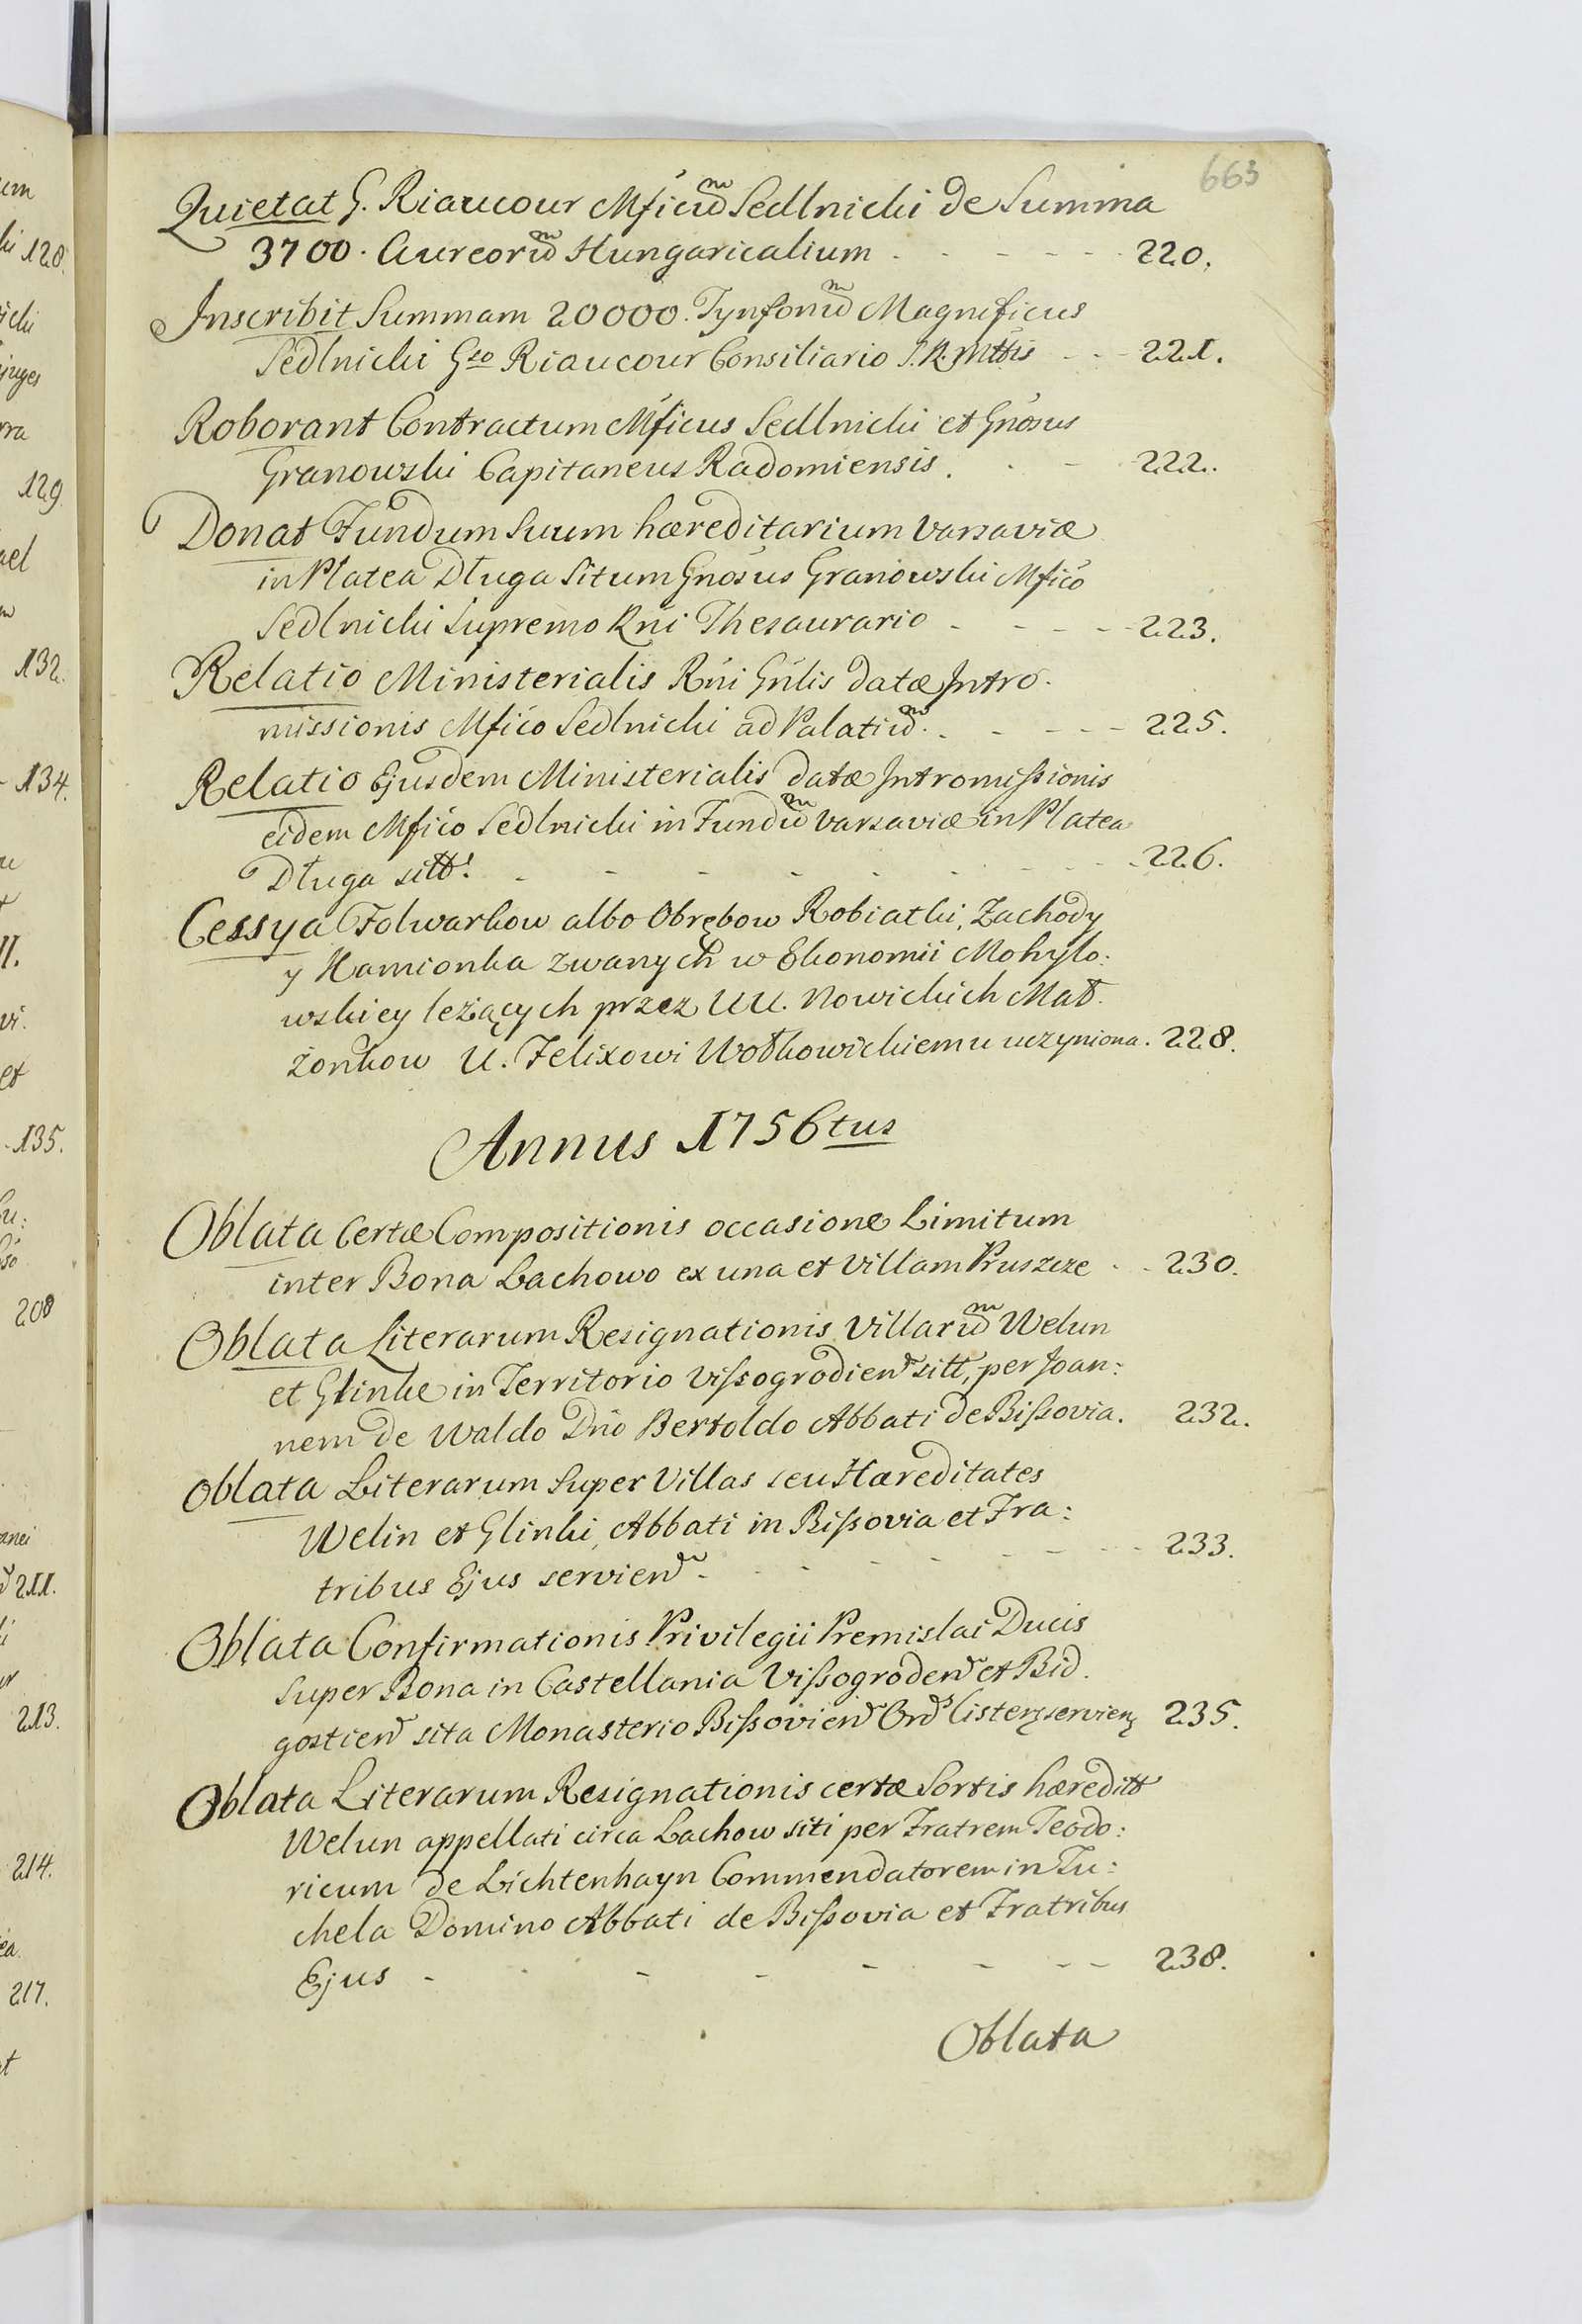 663
Quietat G. Riaucour Mficum Sedlnicki de Summa
3700. Aureorum Hungaricalium - - - - - 220.
Inscribit Summam 20000. Tynfonum Magnificus
Sedlnicki Gso Riaucour Consiliario S. R. Mttis - - - 221.
Roborant Contractum Mficus Sedlnicki et Gnosus
Granowski Capitaneus Radomiensis. - - 222.
Donat Fundum Suum hæreditarium Varsaviæ
in Platea Długa Situm Gnosus Granowski Mfico
Sedlnicki Supremo Rni Thesaurario - - - - 223.
Relatio Ministerialis Rni Gnlis datæ Intro-
missionis Mfico Sedlnicki ad Palatium. - - - - - 225.
Relatio Ejusdem Ministerialis datæ Intromissionis
eidem Mfico Sedlnicki in Fundum Varsaviæ in Platea
Długa sitt: - - - - - - - - 226.
Cessya Folwarkow albo Obrębow Robiatki, Zachody
y Kamionka zwanych w Ekonomii Mohylo:
wskiey leżących przez UU. Nowickich Mał-
żonkow U. Felixowi Wołkowickiemu uczyniona. 228.
Annus 1756tus
Oblata Certæ Compositionis occasione Limitum
inter Bona Lachowo ex una et Villam Pruszcze - - 230.
Oblata Literarum Resignationis Villarum Welun
et Glinke in Territorio Vissogrodien sitt, per Joan:
nem de Waldo Dno Bertoldo Abbati de Bissovia. 232.
Oblata Literarum Super Villas seu Hæreditates
Welin et Glinki, Abbati in Bissovia et Fra:
tribus Ejus servien - - - - - - - 233.
Oblata Confirmationis Privilegii Premislai Ducis
Super Bona in Castellania Vissogroden et Bid-
gostien sita Monasterio Bissovien Ords Cisterz servienz 235.
Oblata Literarum Resignationis certæ Sortis hæreditt
Welun appellati circa Lachow siti per Fratrem Teodo:
ricum de Lichtenhayn Commendatorem in Tu:
chela Domino Abbati de Bissovia et Fratribus
Ejus - - - - - - - - 238.
Oblata